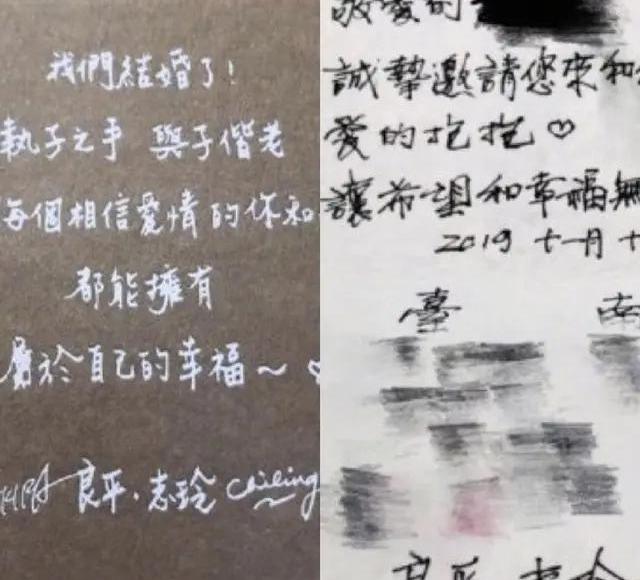 我們結婚了!
執子之手 與子偕老
每個相信愛情的你和
都能擁有
屬於自己的幸福~ ♡
良平.志玲 Chiling
敬愛的
誠摯邀請您來和
愛的抱抱♡
讓希望和幸福無
2019 十一月 十
臺 南
良平 志玲